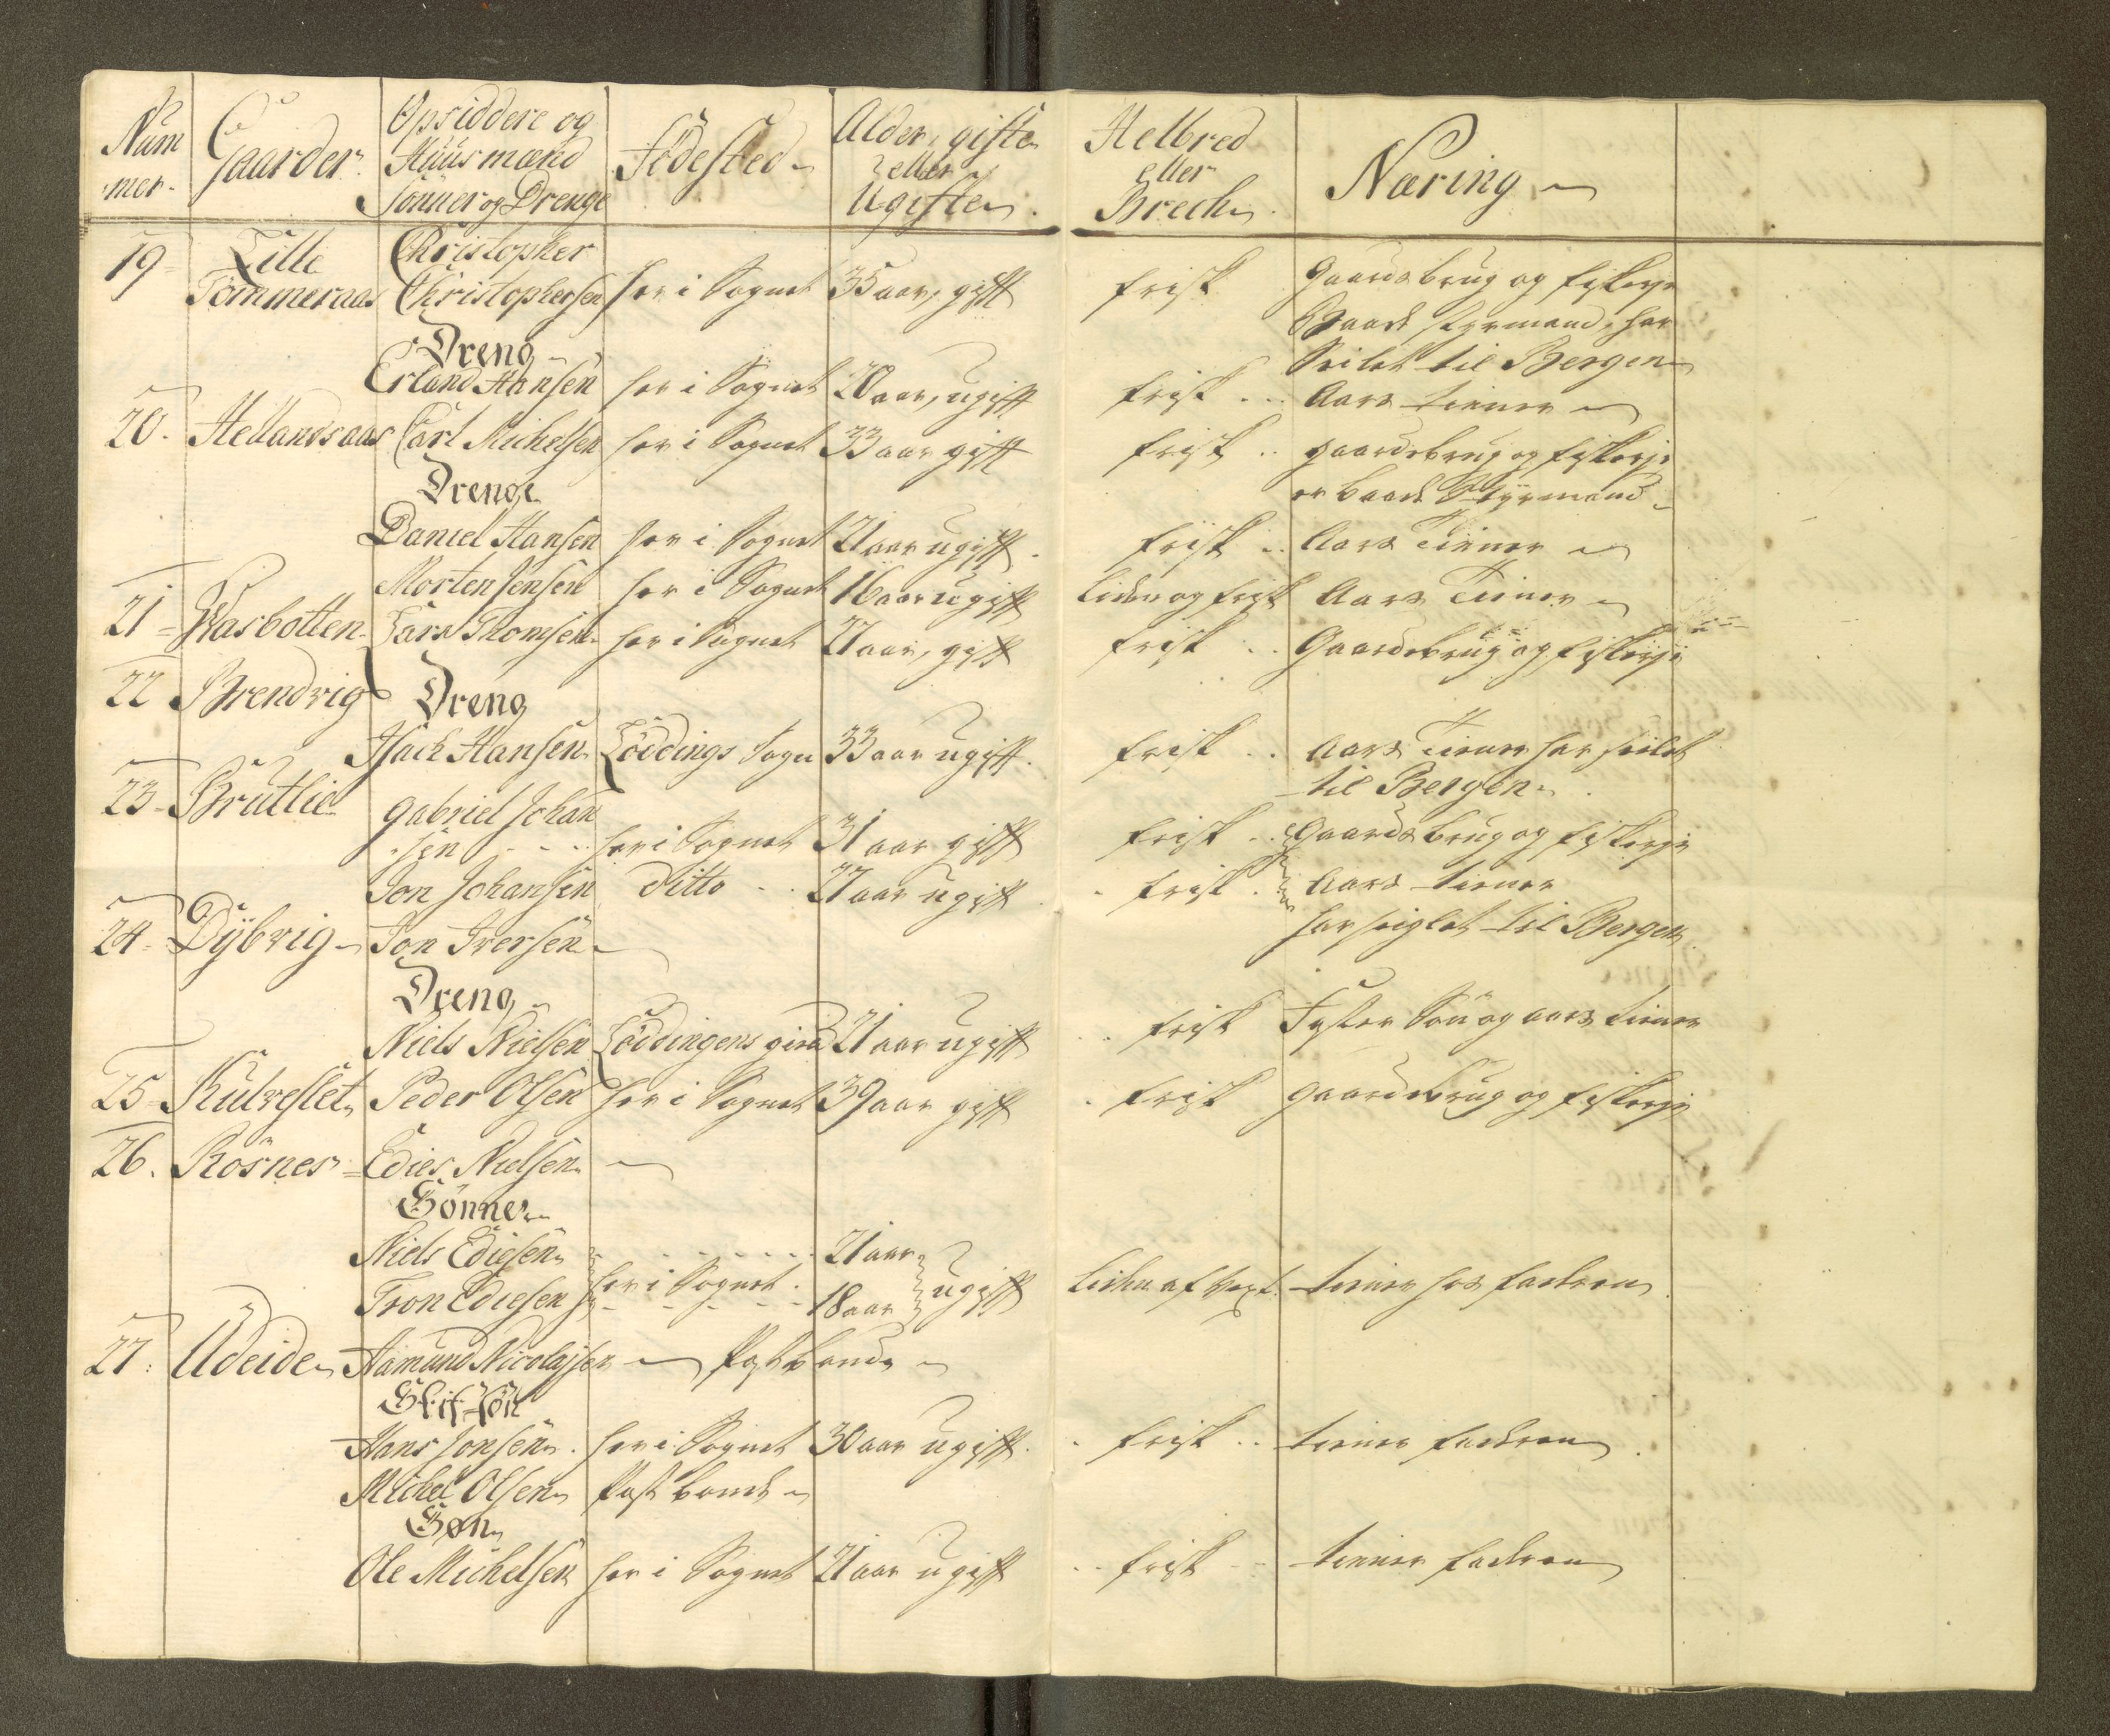 Num
mer.
Gaarder.
Opsiddere og
Huusmænd
Sönner og Drenge
Födested
Alder, gifte
eller
Ugifte
Helbred
eller
Bræck
Næring
19 Lille Christopher
Tömmeraas Christophersen her i Sognet 35 aar, gift frisk Gaardsbrug og fiskerje
Baads styrmand, har
Seilet til Bergen
Dreng
Erland Hansen her i Sognet 20 aar, ugift frisk .. Aars tiener
20. Hellandsaas Carl Michelsen her i Sognet 33 aar gift frisk .. gaardsbrug og fiskerje
er baads Styrmand
Drenge
Daniel Hansen her i Sognet 21 aar ugift. frisk .. Aars Tiener
Morten Jensen her i Sognet 16 aar ugift liden og frisk Aars Tiener
21 Wasbotten Lars Thomsen her i Sognet 27 aar, gift frisk .. Gaardsbrug og fiskerje
22 Brendvig Dreng
Isach Hansen Löddings Sogn 33 aar ugift. frisk .. Aars Tiener har seilet
til Bergen
23 Brutlie Gabriel Johan
sen - - her i Sognet 31 aar gift frisk .. Gaardsbrug og fiskerje
Jon Johansen ditto .. 27 aar ugift. frisk . Aars tiener
har seiglet til Bergen
24 Dÿbvig Jon Iversen
Dreng
Niels Nielsen Löddingens 21 aar ugift frisk Söster Sön og aars tiener
25 Kulveslet Peder Olsen her i Sognet 39 aar gift . frisk gaardsbrug og fiskerje
26. Rösnes Edies Nielsen
Sönner
Niels Ediesen 21 aar
Tron Ediesen her i Sognet. 18 aar ugift liden af vext. tiener hos faderen
27. Udeide Aamund Nicolajsen Postbonde
Stif-sön
Hans Jonsen . her i Sognet 30 aar ugift. . frisk .. tiener faderen
Michel Olsen Post bonde
Søn
Ole Michelsen her i Sognet 21 aar ugift .. frisk -- tiener faderen